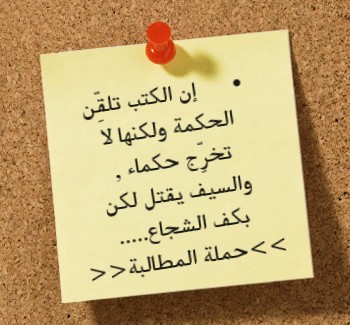 • إن الكتب تلقِّن
الحكمة ولكنها لا
تخرِّج حكماء ,
والسيف يقتل لكن
بكف الشجاع.....
>>حملة المطالبة<<